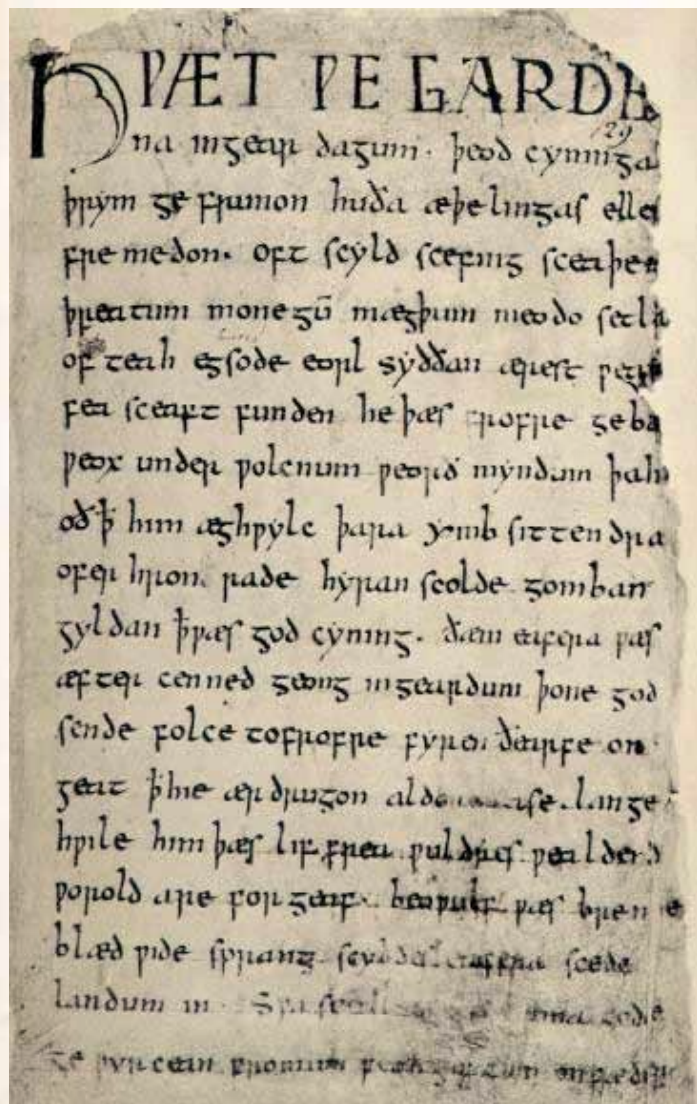 HǷÆT ǷE GARDE
129
na ingear dagum· þeod cyninga
þrym ge frunon huða æþelingas elle
fre medon· oft scyld scefing sceaþe
þreatum monegū mægþum meodo setla
of teah egsode eorl syððan ærest ƿear
fea sceaft funden he þæs frofre geba
ƿeox under ƿolcnum ƿeorð myndum þah
oð þ̄ him æghƿylc þara ymb sittendra
ofer hron rade hyran scolde gomban
gyldan þ̄ ƿæs god cyning· ðæm eafera ƿæs
æfter cenned geong ingeardum þone god
sende folce tofrofre fyren ðearfe on
geat þ̄ hie ær drugon aldor ase· lange
hƿile him þæs lif frea ƿuldres ƿealdend
ƿorold are for geaf· beoƿulf ƿæs breme
blæd ƿide sprang scyldes eafera scede
landum in· Sƿa gode
ge ƿyrcean fromum feoh giftum on fæder